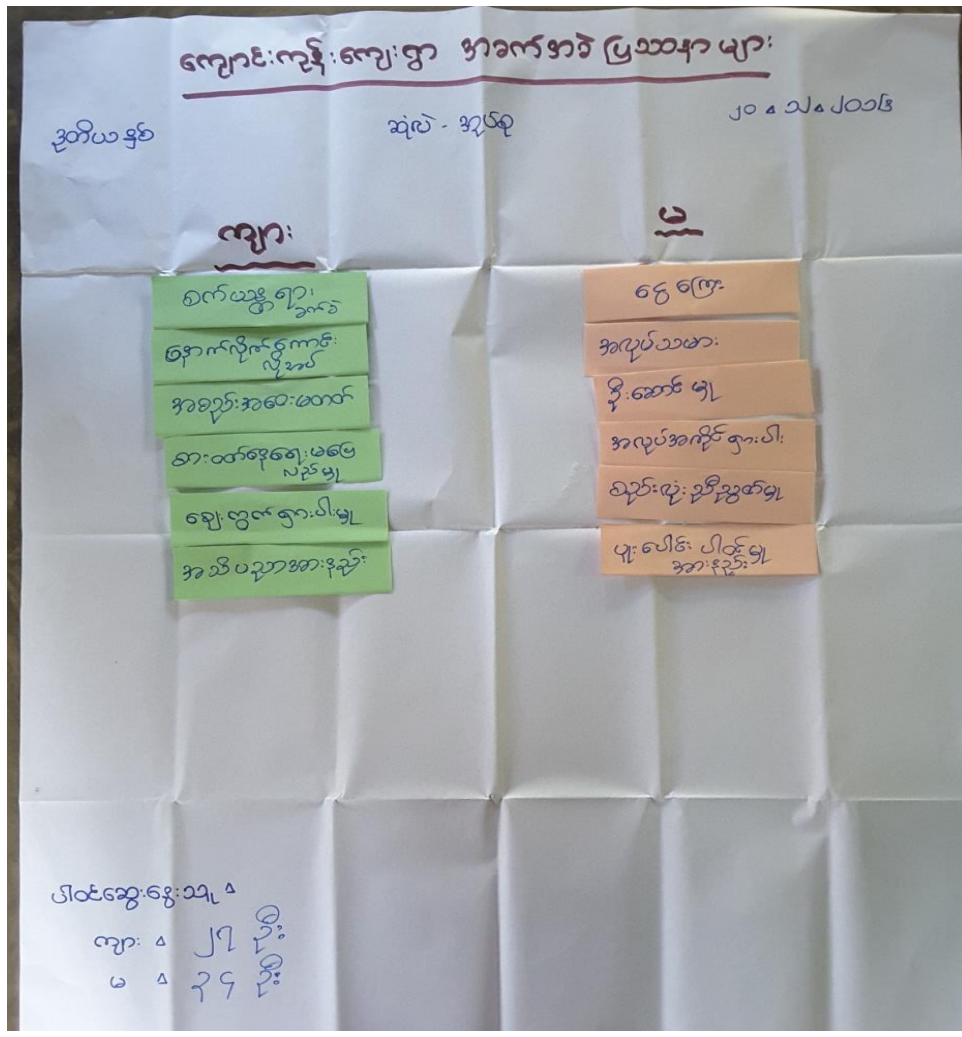 ကျောင်းကုန်းကျေးရွာ အခက်အခဲ ပြဿနာများ
ဒုတိယနှစ်
ဆုံလဲ - အုပ်စု
ကျား
စက်ယန္တရား
ခက်ခဲ
နောက်လိုက်ကောင်း
လိုအပ်
အစည်းအဝေးမတတ်
စားဝတ်နေရေးမပြေ
လည်မှု
ချေးငွက်ရှားပါးမှု
အသိပညာအားနည်း
မ
ငွေကြေး
အလုပ်သမား
ဦးဆောင်မှု
အလုပ်အကိုင်ရှားပါး
စည်းလုံးညီညွတ်မှု
ပူးပေါင်းပါဝင်မှု
အားနည်း
ပါဝင်ဆွေးနွေးသူ ▵
ကျား ▵ ၂၇ ဦး
မ ▵ ၃၄ ဦး